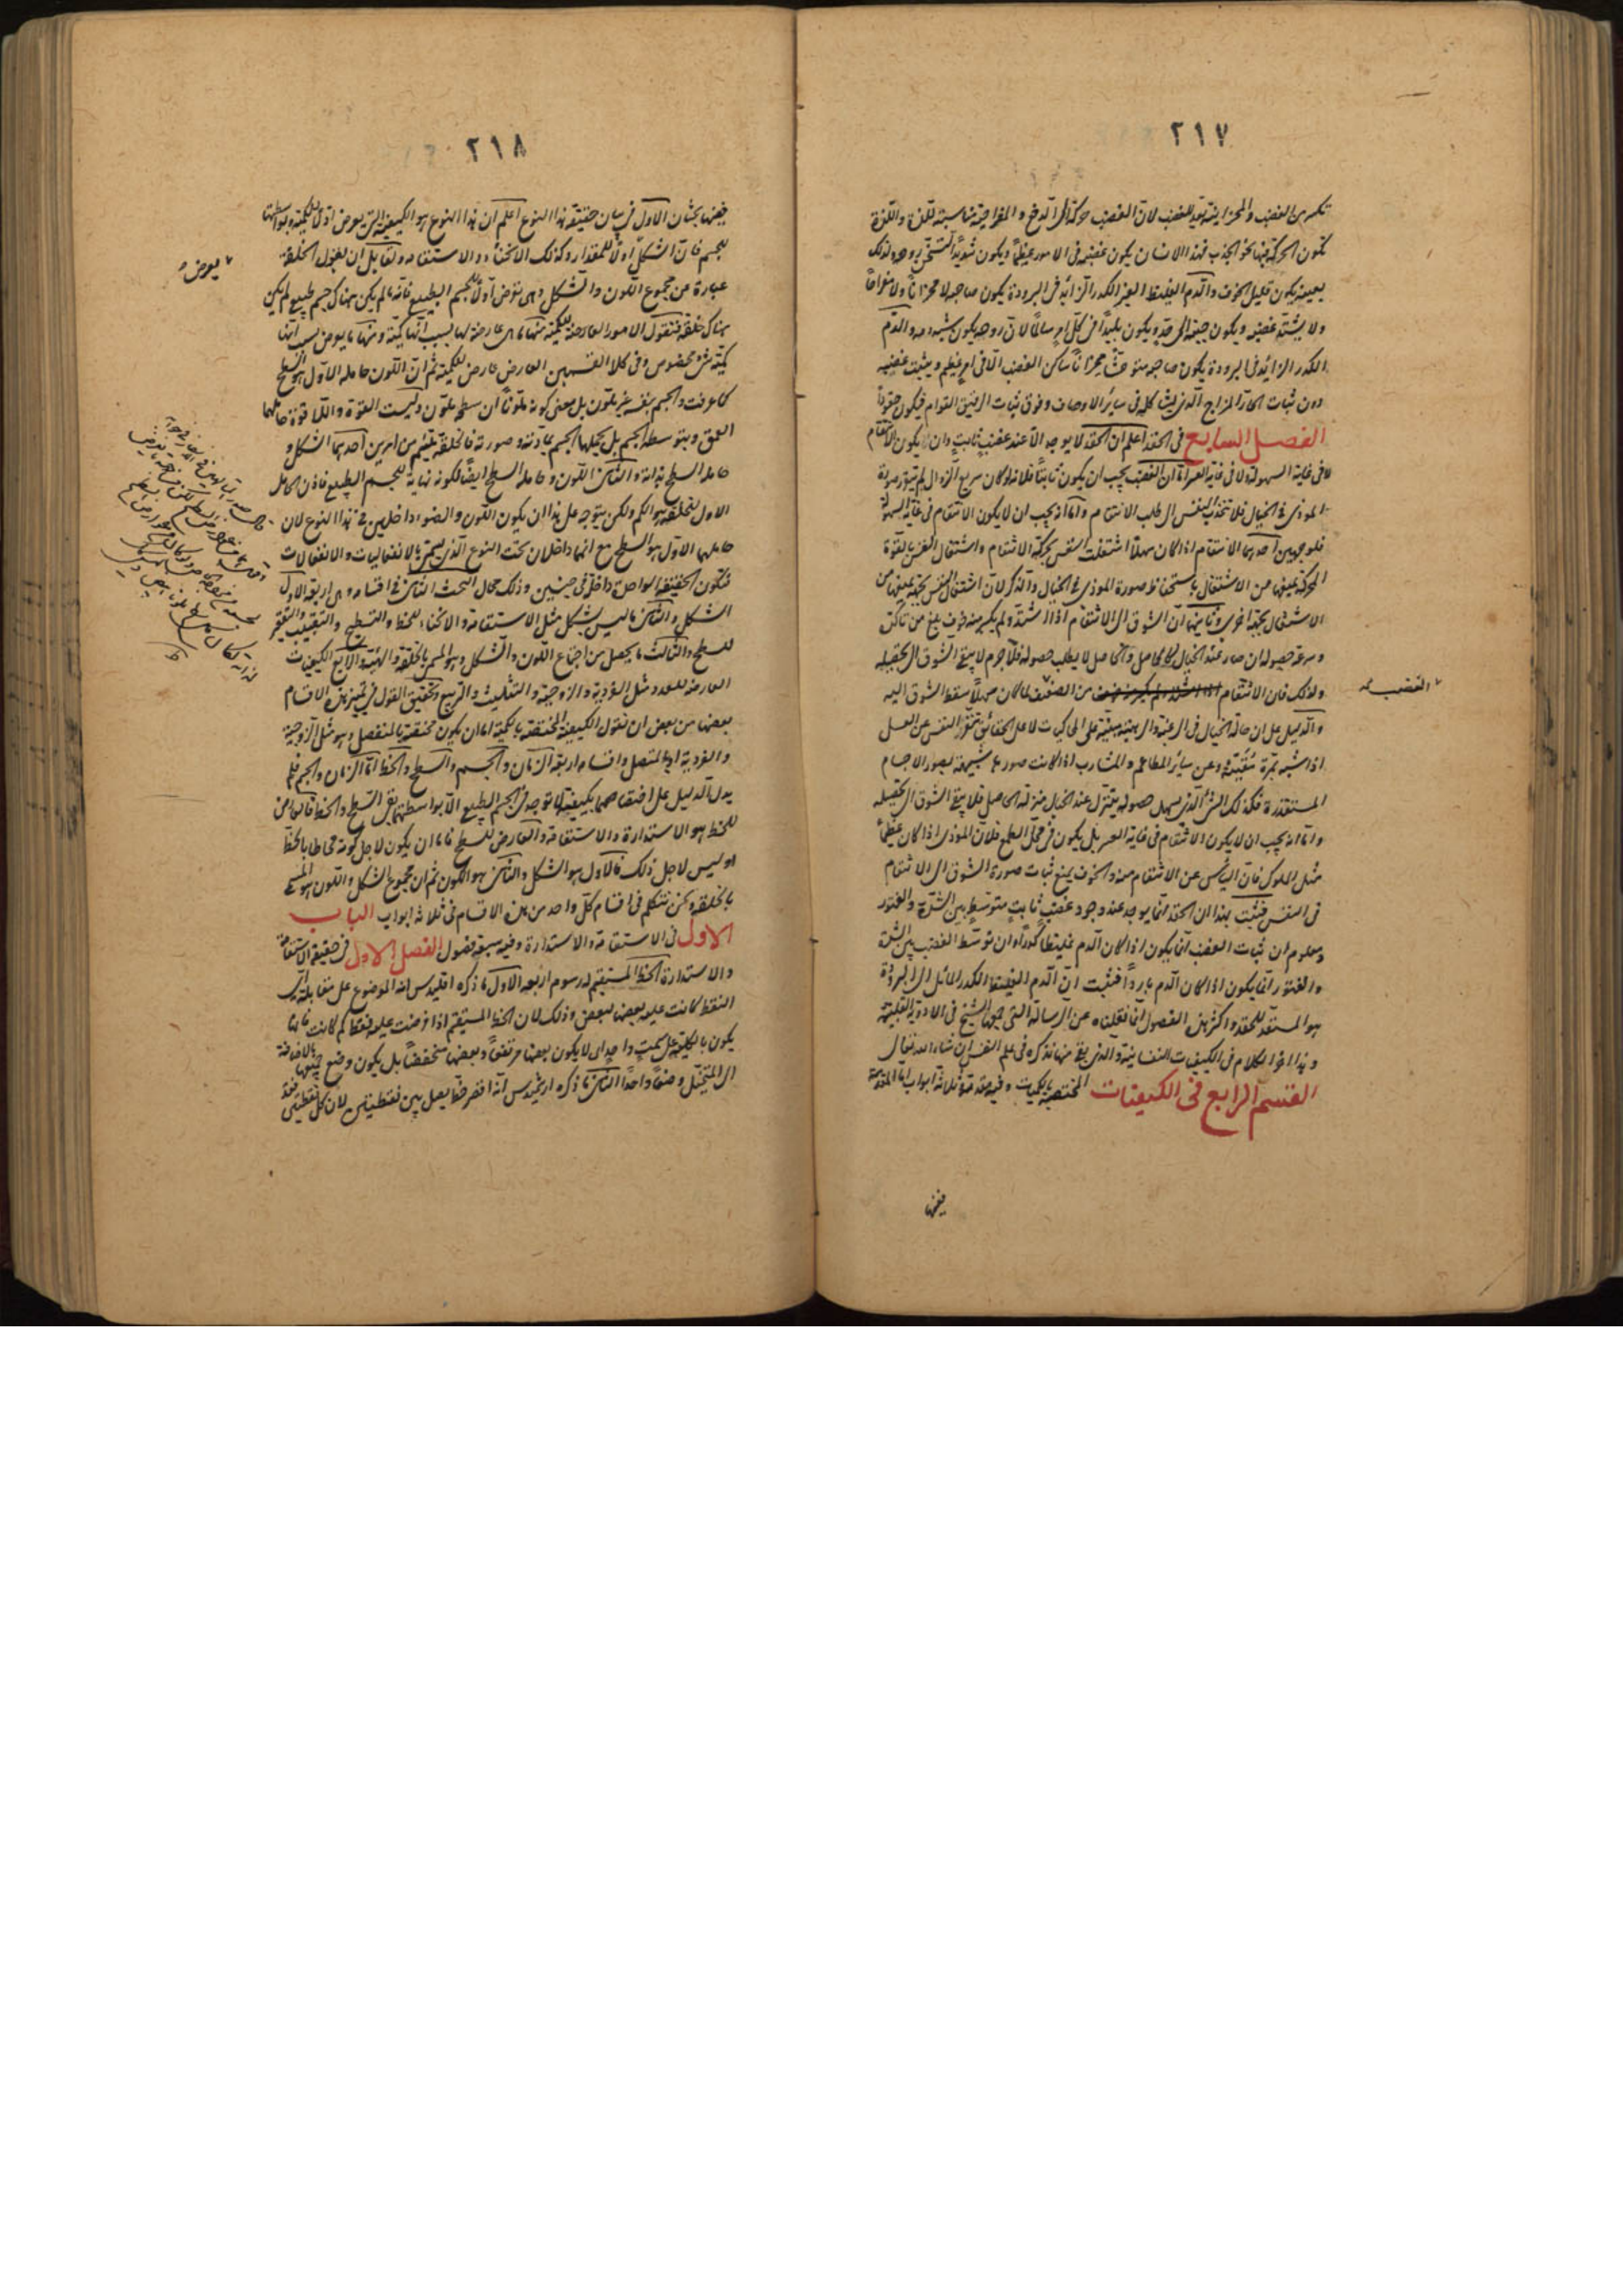 ٢١٧
تكسرى الغضب والمحزانية تؤيد للغضب لان الغضب حركة الى الدفع والمفراحية مناسبة للذة واللذة
تكون الحركة فيها نحو الجذب فهذا الانسان يكون غضبه فى الامور عظيما ويكون شديدا لتسخن روحه ولذلك
بعينه يكون قليل الخوف والدم الغليظ الغير الكدر الزائد فى البرودة يكون صاحبه لا محزانا ولا مفراحا
ولا يشتد غضبه ويكون جبنه الى حد ويكون بليدا فى كل امر ساكنا لان روحه يكون شبيه دمه والدم
الكدر الزائد فى البرودة يكون صاحبه متوحشا محزانا ساكن الغضب الا فى امر عظيم ويثبت غضبه
دون ثبات الحار المزاج الذى يشاكله فى سائر الاوصاف وفوق ثبات الرقيق القوام فيكون حقودا
الفصل السابع فى الحقد اعلم ان الحقد لا يوجد الا عند غضب ثابت وان لا يكون الانتقام
لا فى غاية السهولة ولا فى غاية العسر اما ان الغضب يجب ان يكون ثابتا فلانه لو كان سريع الزوال لم يتقرر صورة
الموذى فى الخيال فلا تنجذب النفس الى طلب الانتقام واما انه يجب ان لا يكون الانتقام فى غاية السهولة
فلوجهين احدهما الانتقام اذا كان سهلا اشتغلت النفس بحركة الانتقام واشتغال النفس بالقوة
المحركة يمنعها من الاشتغال باستحفاظ صورة الموذى فى الخيال والذكر لان اشتغال النفس بجهة يمنعها من
الاشتغال بجهة اخرى وثانيهما ان الشوق الى الانتقام اذا اشتد ولم يكبر منه خوف بلغ من تأكده
وسرعة حصوله ان صار عند الخيال كالحاصل والحاصل لا يطلب حصوله فلا جرم لا يبقى الشوق الى تحصيله
ولذلك فان الانتقام من الضعيف لما كان سهلا سقط الشوق اليه
الغضب
والدليل على ان حالة الخيال فى الرغبة والرهبة مبنية على المحاكيات لا على الحقائق تنفر النفس عن العسل
اذا شبه بمرة مقيئة وعن سائر المطاعم والمشارب اذا كانت صورها شبيهة بصور الاجسام
المستقذرة فكذلك الشئ الذى سهل حصوله يتنزل عند الخيال منزلة الحاصل فلا يبقى الشوق الى تحصيله
واما انه يجب ان لا يكون الانتقام فى غاية العسر بل يكون فى محل الطمع فلان الموذى اذا كان عظيما
مثل الملوك فان اليأس عن الانتقام منه والخوف يمنع ثبات صورة الشوق الى الانتقام
فى النفس فثبت بهذا ان الحقد انما يوجد عند وجود غضب ثابت متوسط بين الشدة والفتور
ومعلوم ان ثبات الغضب انما يكون اذا كان الدم غليظا كدرا وان توسط الغضب بين الشدة
والفتور انما يكون اذا كان الدم باردا فثبت ان الدم الغليظ الكدر المائل الى البرودة
هو المستعد للحقد واكثر هذه الفصول انما نقلناه عن الرسالة التى عملها الشيخ فى الادوية القلبية
وهذا اخر الكلام فى الكيفيات النفسانية والذى بقى منها نذكره فى علم النفس ان شاء الله تعالى
القسم الرابع فى الكيفيات المختصة بالكميات وفيه مقدمة وثلاثة ابواب اما المقدمة
ففيها
٢١٨
ففيها بحثان الاول فى بيان حقيقة هذا النوع اعلم ان هذا النوع هو الكيفية التى يعرض اولا للكمية وبواسطتها
للجسم فان الشكل اولا للمقدار وكذلك الانحناء والاستقامة ولقائل ان يقول الخلقة
يعرض
عبارة عن مجموع اللون والشكل وهى تعرض اولا للجسم الطبيعى فانه ما لم يكن هناك جسم طبيعى لم يكن
هناك خلقة فنقول الامور العارضة للكمية منها ما هى عارضة لها بسبب انها كمية ومنها ما يعرض بسبب انها
كمية شئ مخصوص وفى كلا القسمين العارض عارض للكمية ثم ان اللون حامله الاول هو السطح
كما عرفت والجسم بنفسه غير ملون بل معنى كونه ملونا ان سطحه ملون وليست القوة واللاقوة حاملهما
العمق وبتوسطه الجسم بل يحملها الجسم بمادته وصورته فالخلقة تلتئم من امرين احدهما الشكل و
حامله السطح بذاته والثانى اللون وحامله السطح ايضا لكونه نهاية للجسم الطبيعى فاذن الحامل
الاول للخلقة هو الكم ولكن يتوجه على هذا ان يكون اللون والضوء داخلين فى هذا النوع لان
حاملهما الاول هو السطح مع انهما داخلان تحت النوع الذى يسمى بالانفعاليات والانفعالات
فتكون الحقيقة الواحدة داخلة فى جنسين وذلك محال البحث الثانى فى اقسامه وهى اربعة الاول
الشكل والثانى ما ليس بشكل مثل الاستقامة والانحناء للخط والتسطيح والتقبيب والتقعير
للسطح والثالث ما يحصل من اجتماع اللون والشكل وهو المسمى بالخلقة والهيئة والرابع الكيفيات
العارضة للعدد مثل الفردية والزوجية والتثليث والتربيع وتحقيق القول فى تمييز هذه الاقسام
بعضها من بعض ان نقول الكيفية المختصة بالكمية اما ان يكون مختصة بالمنفصل وهو مثل الزوجية
والفردية او بالمتصل واقسامه اربعة الزمان والجسم والسطح والخط اما الزمان والجسم فلم
يدل الدليل على اختصاصهما بكيفية لا توجد فى الجسم الطبيعى الا بواسطتهما بقى السطح والخط فالعارض
للخط هو الاستدارة والاستقامة والعارض للسطح فاما ان يكون لاجل كونه محاطا بالخط
او ليس لاجل ذلك فالاول هو الشكل والثانى هو اللون ثم ان مجموع الشكل واللون هو المسمى
بالخلقة ونحن نتكلم فى اقسام كل واحد من هذه الاقسام فى ثلاثة ابواب الباب
الاول فى الاستقامة والاستدارة وفيه سبعة فصول الفصل الاول فى حقيقة الاستقامة
والاستدارة الخط المستقيم له رسوم اربعة الاول ما ذكره اقليدس انه الموضوع على مقابلة اى
النقط كانت عليه بعضها لبعض وذلك لان الخط المستقيم اذا فرضت عليه نقط كم كانت فانها
يكون بالكلية على سمت واحد اى لا يكون بعضها مرتفعا وبعضها منخفضا بل يكون وضع جميعها بالاضافة
الى المتخيل وضعا واحدا الثانى ما ذكره ارشميدس انه اقصر خط يصل بين نقطتين لان كل نقطتين فقد